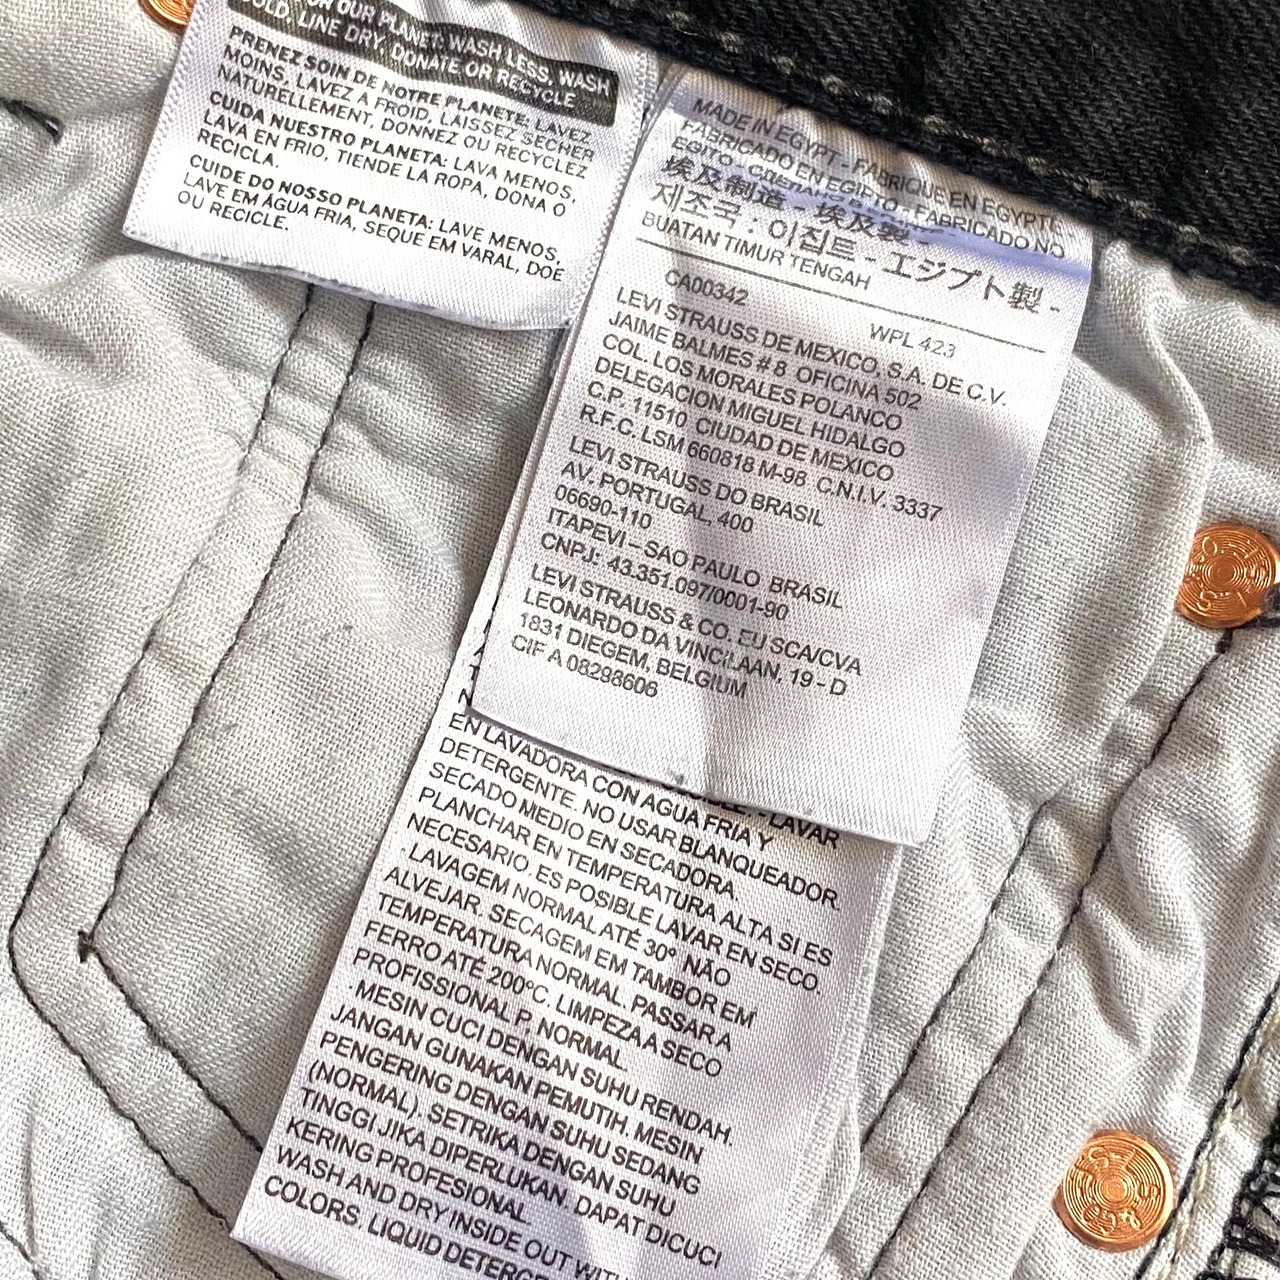 FOR OUR PLANET: WASH LESS, WASH
COLD, LINE DRY, DONATE OR RECYCLE
PRENEZ SOIN DE NOTRE PLANETE: LAVEZ
MOINS, LAVEZ À FROID, LAISSEZ SÉCHER
NATURELLEMENT, DONNEZ OU RECYCLEZ
CUIDA NUESTRO PLANETA: LAVA MENOS,
LAVA EN FRIO, TIENDE LA ROPA, DONA O
RECICLA.
CUIDE DO NOSSO PLANETA: LAVE MENOS,
LAVE EM ÁGUA FRIA, SEQUE EM VARAL, DOE
OU RECICLE.
MADE IN EGYPT - FABRIQUE EN EGYPTE
FABRICADO EN EGIPTO - FABRICADO NO
EGITO - СДЕЛАНО В
埃及制造 - 埃及製 -
제조국 : 이집트 - エジプト製 -
BUATAN TIMUR TENGAH
CA00342 WPL 423
LEVI STRAUSS DE MEXICO, S.A. DE C.V.
JAIME BALMES # 8 OFICINA 502
COL. LOS MORALES POLANCO
DELEGACION MIGUEL HIDALGO
C.P. 11510 CIUDAD DE MEXICO
R.F.C. LSM 660818 M-98 C.N.I.V. 3337
LEVI STRAUSS DO BRASIL
AV. PORTUGAL, 400
06690-110
ITAPEVI – SAO PAULO BRASIL
CNPJ: 43.351.097/0001-90
LEVI STRAUSS & CO. EU SCA/CVA
LEONARDO DA VINCILAAN, 19 - D
1831 DIEGEM, BELGIUM
CIF A 08298606
- LAVAR
EN LAVADORA CON AGUA FRIA Y
DETERGENTE. NO USAR BLANQUEADOR.
SECADO MEDIO EN SECADORA.
PLANCHAR EN TEMPERATURA ALTA SI ES
NECESARIO. ES POSIBLE LAVAR EN SECO.
· LAVAGEM NORMAL ATÉ 30º. NÃO
ALVEJAR. SECAGEM EM TAMBOR EM
TEMPERATURA NORMAL. PASSAR A
FERRO ATÉ 200ºC. LIMPEZA A SECO
PROFISSIONAL P, NORMAL
· MESIN CUCI DENGAN SUHU RENDAH.
JANGAN GUNAKAN PEMUTIH. MESIN
PENGERING DENGAN SUHU SEDANG
(NORMAL). SETRIKA DENGAN SUHU
TINGGI JIKA DIPERLUKAN. DAPAT DICUCI
KERING PROFESIONAL
WASH AND DRY INSIDE OUT WITH
COLORS. LIQUID DETERGE